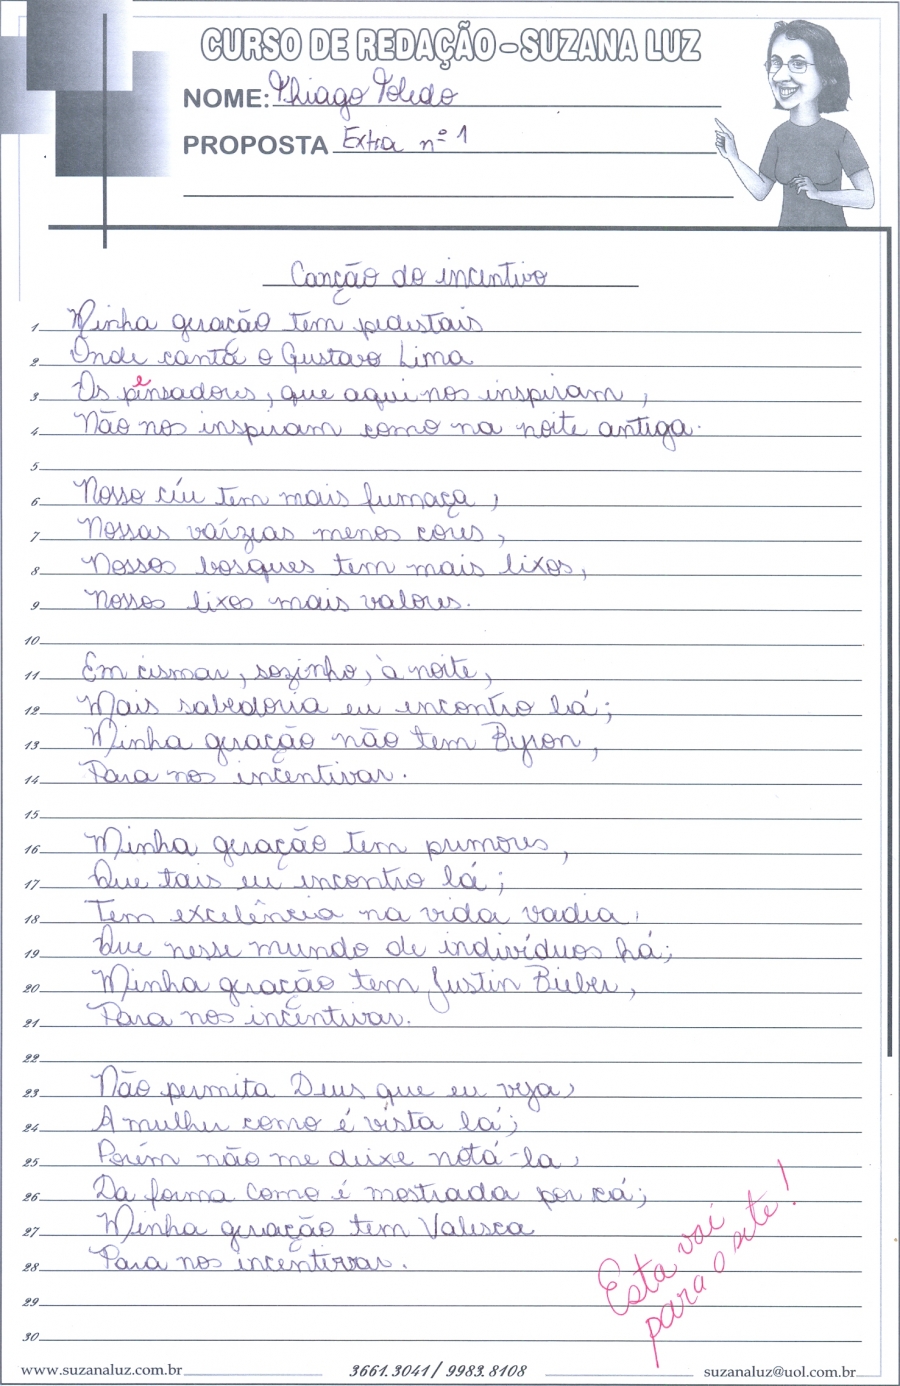 CURSO DE REDAÇÃO - SUZANA LUZ
NOME: Thiago Toledo
PROPOSTA Extra nº 1
Canção do incentivo
1 Minha geração tem pedestais
2 Onde canta o Gustavo Lima
3 Os pensadores, que aqui nos inspiram,
4 Não nos inspiram como na noite antiga.
5
6 Nosso céu tem mais fumaça,
7 Nossas várzias menos cores,
8 Nossos bosques tem mais lixos,
9 Nossos lixos mais valores.
10
11 Em cismar, sozinho, à noite,
12 Mais sabedoria eu encontro lá;
13 Minha geração não tem Byron,
14 Para nos incentivar.
15
16 Minha geração tem primores,
17 Que tais eu encontro lá;
18 Tem excelência na vida vadia,
19 Que nesse mundo de indivíduos há;
20 Minha geração tem Justin Bieber,
21 Para nos incentivar.
22
23 Não permita Deus que eu veja,
24 A mulher como é vista lá;
25 Porém não me deixe notá-la,
26 Da forma como é mostrada por cá;
27 Minha geração tem Valesca
28 Para nos incentivar.
29
30
Esta vai
para o site!
www.suzanaluz.com.br
3661.3041 / 9983.8108
suzanaluz@uol.com.br